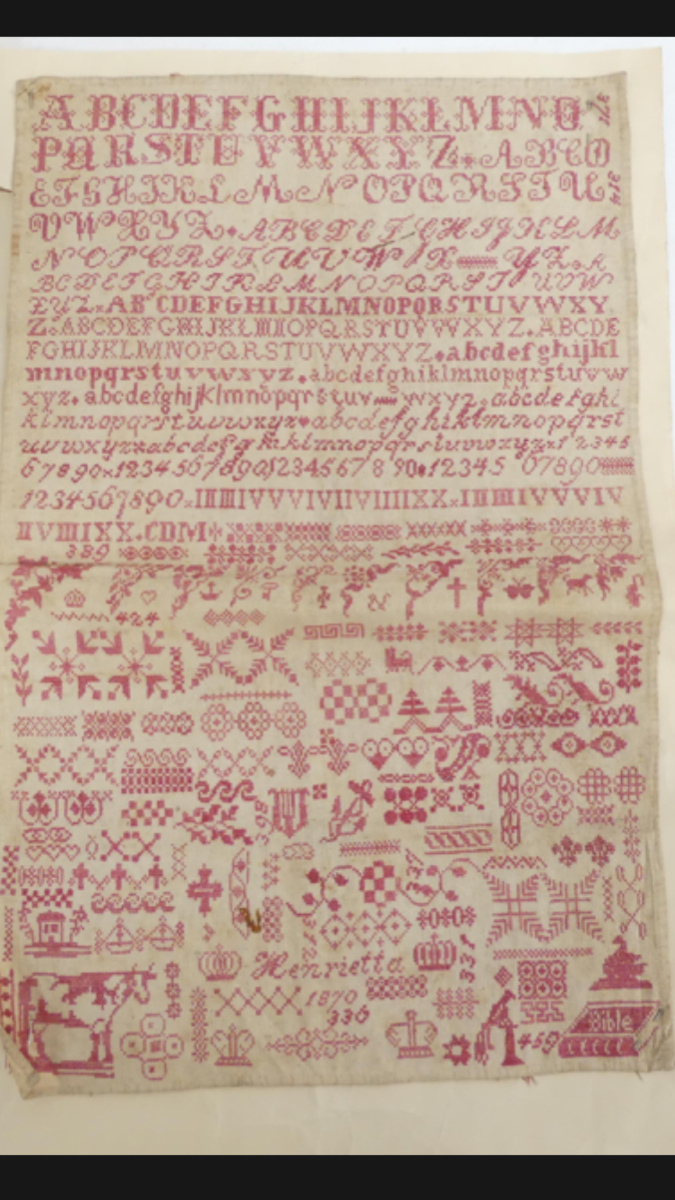 ABCDEFGHIJKLMNO
PQRSTUVWXYZ ABCD
EFGHIKL M N OPQRSTU
VWXYZ ABCDEFGHIJKLM
NOPQRSTUVW X YZ A
BCDEFGHIKLMNOPQRST UVW
XYZ ABCDEFGHIJKLMNOPQRSTUVWXY
Z ABCDEFGHIJKLMNOPQRSTUVWXYZ ABCDE
FGHIJKLMNOPQRSTUVWXYZ abcdefghijkl
mnopqrstuvwxyz abcdefghiklmnopqrstuvw
xyz abcdefghijklmnopqrstuv wxyz abcdefghi
klmnopqrstuvwxyz abcdefghiklmnopqrst
uvwxyz abcdefghiklmnopqrstuvwxyz 12345
67890 1234567890 1234567890 12345 67890
1234567890 I II III IV V VI VII VIII IX X I II III IV V VI V
II VIII IX X CDM
339
424
Henrietta
1870
336
Bible
459